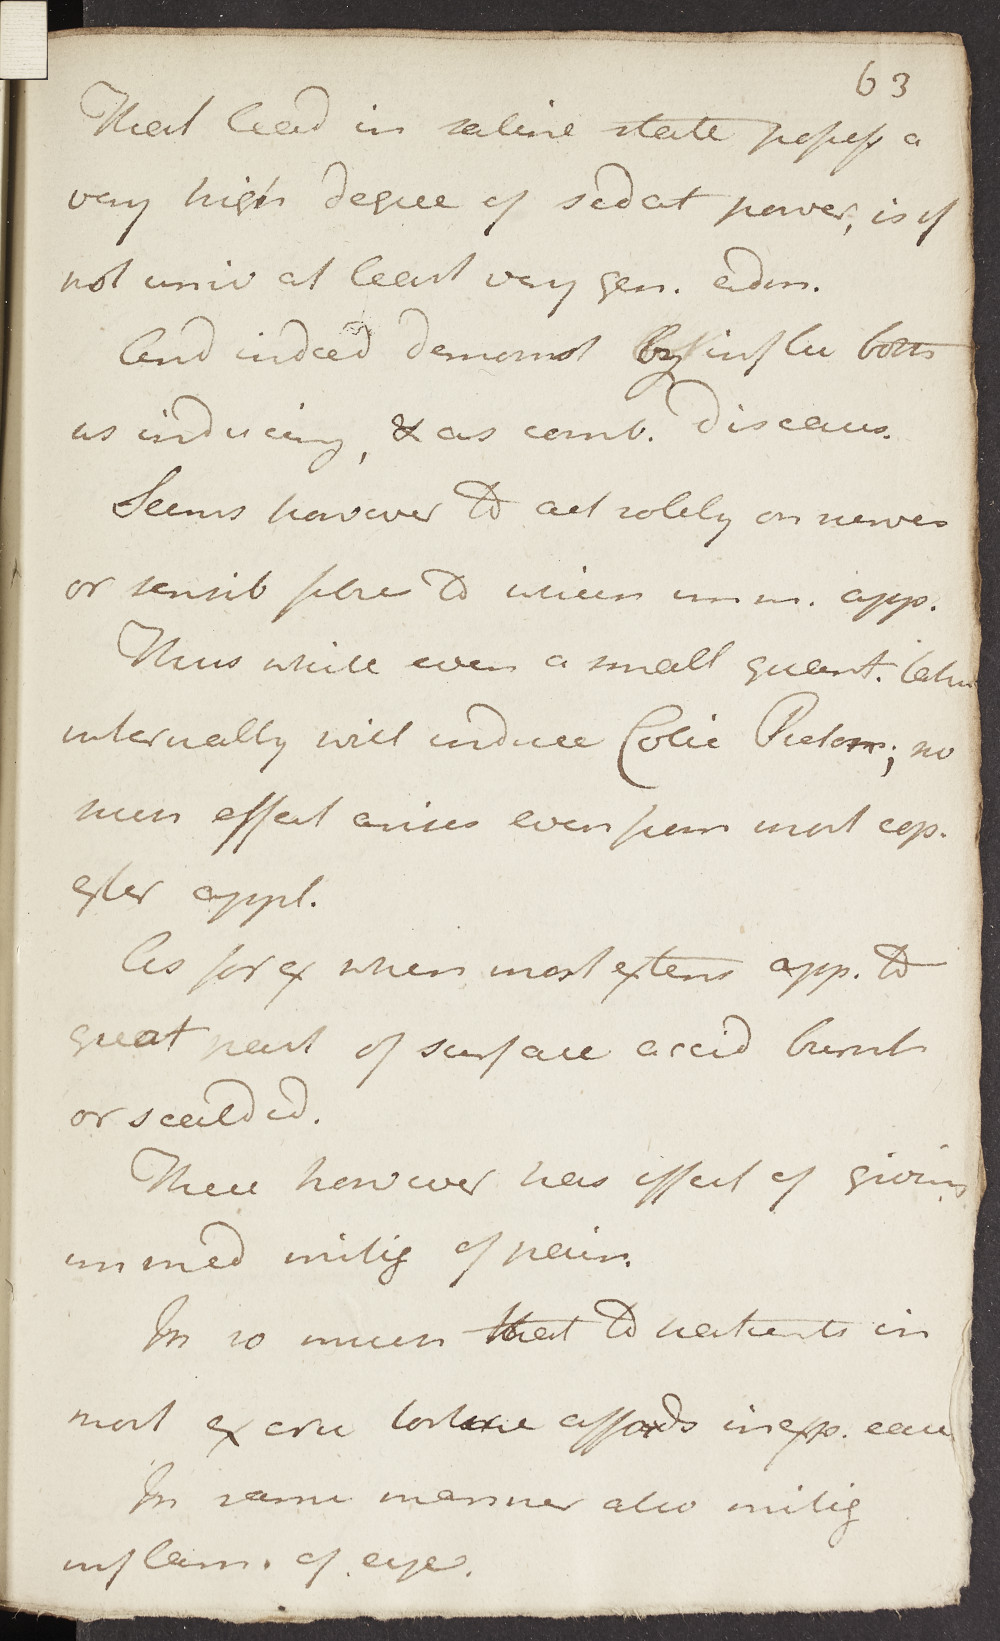 63
That lead in saline state possess a
very high degree of sedat power, is if
not univ at least very gen. adm.
And indeed demonst by influ both
as inducing, & as comb. diseases.
Seems however to act solely on nerves
or sensib fibre to which imm. app.
Thus while even a small quant. taken
internally will induce Colic Picton; no
such effect arises even from most cop.
exter appl.
As for ex when most extens app. to
great part of surface accid burnt
or scalded.
There however has effect of giving
immed mitig of pain.
In so much that to patients in
most excru torture affords inexp. ease
In same manner also mitig
inflam. of eyes.